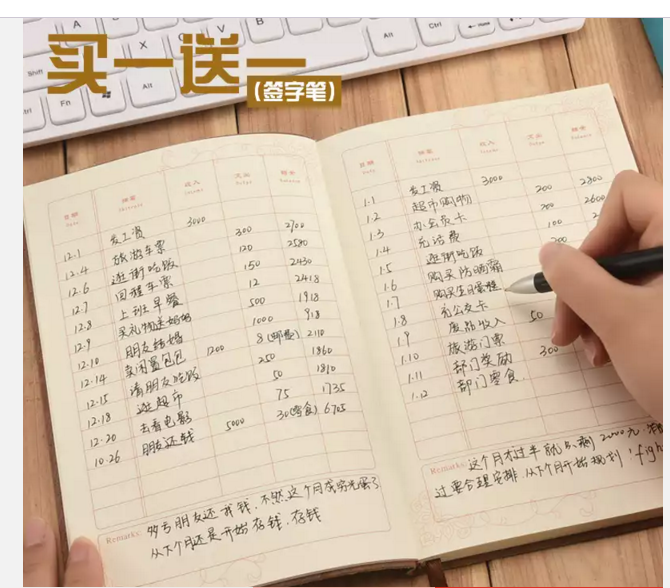 买一送一
(签字笔)
日期 摘要 收入 支出 结余
12.1 发工资 3000
12.4 旅游车票 300 2700
12.6 逛街吃饭 120 2580
12.7 回程车票 150 2430
12.8 上班早餐 12 2418
12.9 买礼物送妈妈 500 1918
12.10 朋友结婚 1000 918
12.14 卖闲置包包 1200 8(邮费) 2110
12.15 请朋友吃饭 250 1860
12.18 逛超市 50 1810
12.20 去看电影 75 1735
10.26 朋友还钱 5000 30(零食) 6705
Remarks: 多亏朋友还我钱,不然这个月成穷光蛋了
从下个月还是开始存钱,存钱
日期 摘要 收入 支出 结余
1.1 发工资 3000
1.2 超市购物 200 2800
1.3 办公交卡 200 2600
1.4 充话费 100
1.5 逛街吃饭 200
1.6 购买防晒霜
1.7 购买生日蛋糕
1.8 充公交卡
1.9 废品收入 50
1.10 旅游门票
1.11 部门奖励 300
1.12 部门零食
Remarks: 这个月才过半就只剩2000元
过要合理安排,从下个月开始规划!figh